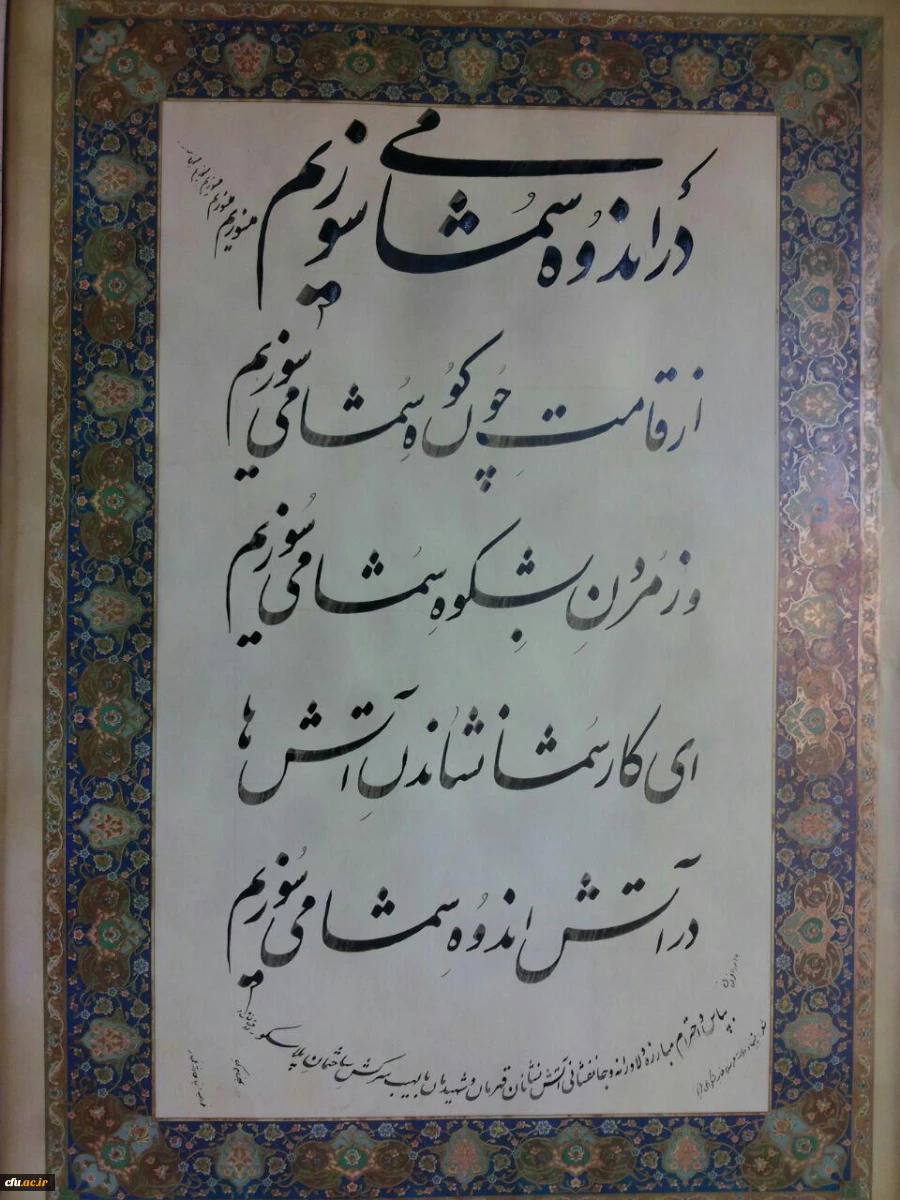 در اندوه شما می سوزیم
می سوزیم
از قامتِ چون کوهِ شما می سوزیم
وز مردنِ بشکوهِ شما می سوزیم
ای کار شما نشاندنِ آتش ها
در آتش اندوهِ شما می سوزیم
بپاس و احترام مبارزه دلاورانه و جانفشانی آتش نشانان قهرمان و شهیدمان با لهیب سرکش ساختمان پلاسکو
cfu.ac.ir